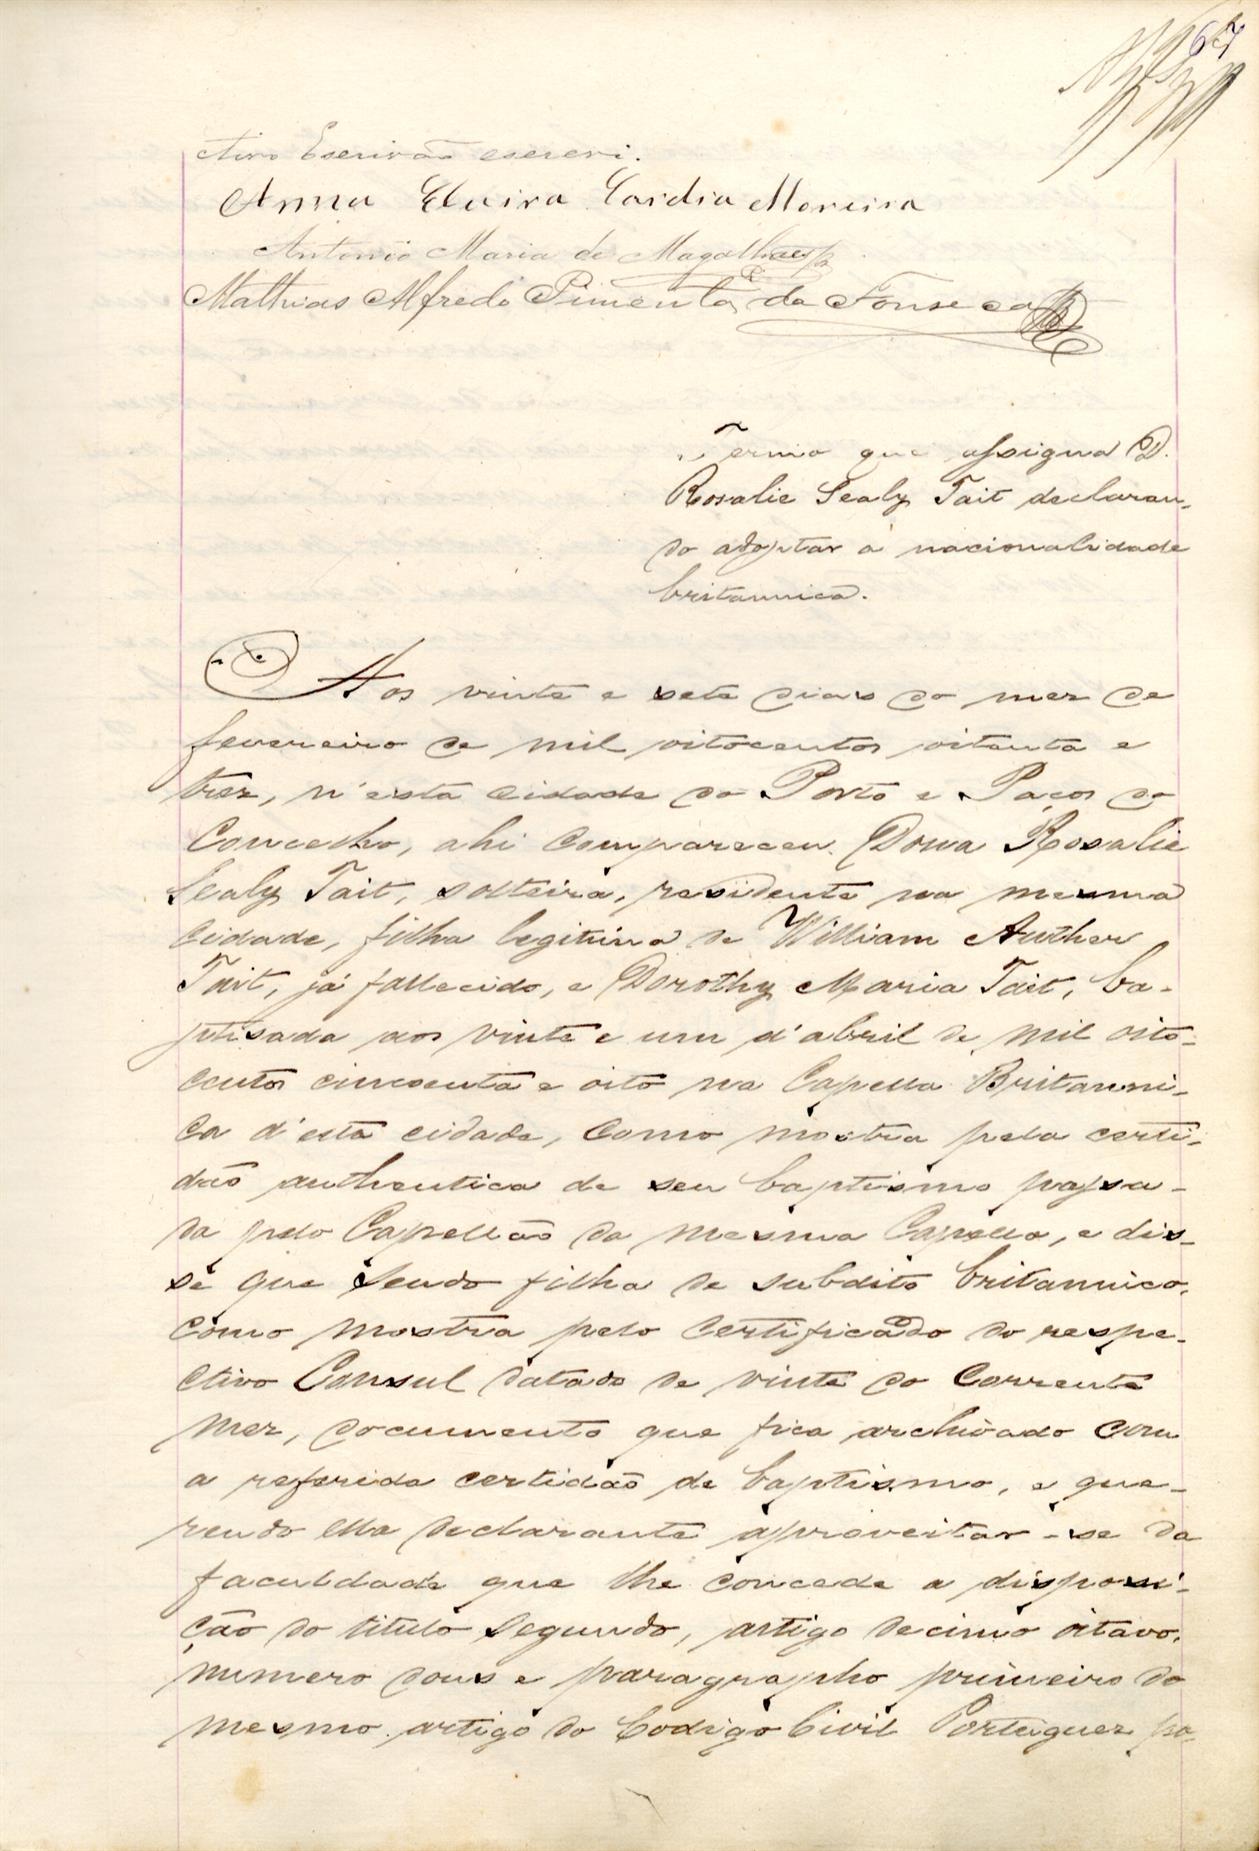 67
ctivo Escrivão escrevi.
Anna Elvira Cardia Moreira
Antonio Maria de Magalhães
Mathias Alfredo Pimenta da Fonseca
Termo que assigna D.
Rosalie Sealy Tait declaran-
do adoptar a nacionalidade
britannica.
Aos vinte e sete dias do mez de
fevereiro de mil oitocentos oitenta e
trez, n'esta cidade do Porto e Paços do
Concelho, ahi compareceu Dona Rosalie
Sealy Tait, solteira, residente na mesma
cidade, filha legitima de William Auther
Tait, já fallecido, e Dorothy Maria Tait, ba-
ptisada aos vinte e um d'abril de mil oito-
centos cincoenta e oito na Capella Britanni-
ca d'esta cidade, como mostra pela certi-
dão authentica de seu baptismo passa-
da pelo Capellão da mesma Capella, e dis-
se que sendo filha de subdito britannico,
como mostra pelo certificado do respe-
ctivo Consul datado de vinte do corrente
mez, documento que fica archivado com
a referida certidão de baptismo, e que-
rendo ella declarante aproveitar-se da
faculdade que lhe concede a disposi-
ção do titulo segundo, artigo decimo oitavo,
numero dous e paragrapho primeiro do
mesmo artigo do Codigo Civil Portuguez pa-